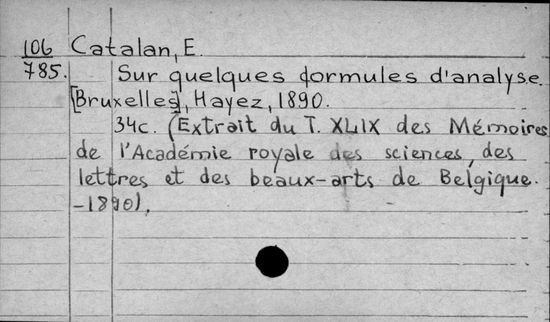 106 Catalan, E.
785. Sur quelques dormules d'analyse.
[Bruxelles], Hayez, 1890.
34c. (Extrait du T. XLIX des Mémoires
de l'Académie royale des sciences, des
lettres et des beaux-arts de Belgique.
-1890).